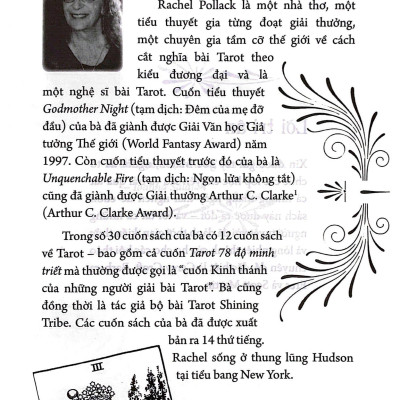 Rachel Pollack là một nhà thơ, một
tiểu thuyết gia từng đoạt giải thưởng,
một chuyên gia tầm cỡ thế giới về cách
cắt nghĩa bài Tarot theo
kiểu đương đại và là
một nghệ sĩ bài Tarot. Cuốn tiểu thuyết
Godmother Night (tạm dịch: Đêm của mẹ đỡ
đầu) của bà đã giành được Giải Văn học Giả
tưởng Thế giới (World Fantasy Award) năm
1997. Còn cuốn tiểu thuyết trước đó của bà là
Unquenchable Fire (tạm dịch: Ngọn lửa không tắt)
cũng đã giành được Giải thưởng Arthur C. Clarke¹
(Arthur C. Clarke Award).
Trong số 30 cuốn sách của bà có 12 cuốn sách
về Tarot – bao gồm cả cuốn Tarot 78 độ minh
triết mà thường được gọi là "cuốn Kinh thánh
của những người giải bài Tarot". Bà cũng
đồng thời là tác giả bộ bài Tarot Shining
Tribe. Các cuốn sách của bà đã được xuất
bản ra 14 thứ tiếng.
Rachel sống ở thung lũng Hudson
tại tiểu bang New York.
III